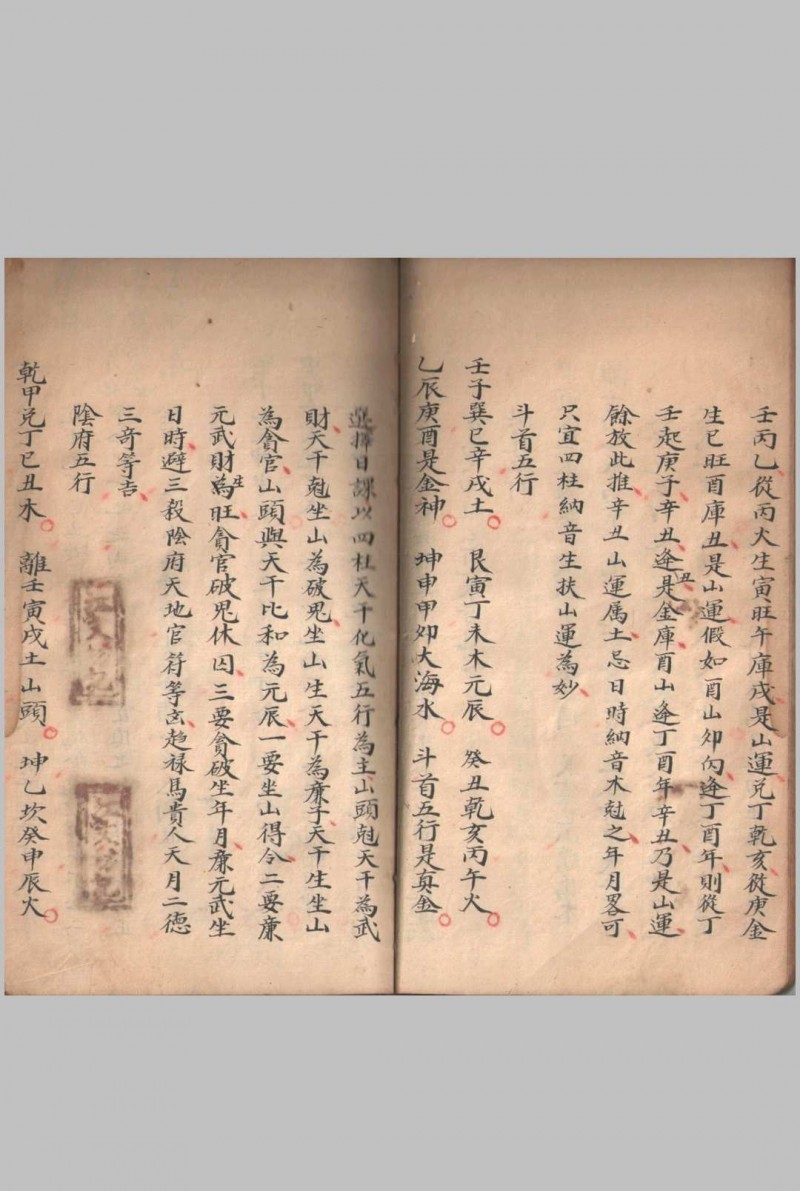 壬丙乙從丙火生寅旺午庫戌是山運兌丁乾亥從庚金
生巳旺酉庫丑是山運假如酉山卯向逢丁酉年則從丁
壬起庚子辛丑逢丑是金庫酉山逢丁酉年辛丑乃是山運
餘放此推辛丑山運属土忌日時納音木尅之年月畧可
只宜四柱納音生扶山運為妙
斗首五行
壬子巽巳辛戌土 艮寅丁未木元辰 癸丑乾亥丙午火
乙辰庚酉是金神 坤申甲卯大海水 斗首五行是真金
選擇日課以四柱天干化氣五行為主山頭尅天干為武
財天干尅坐山為破鬼坐山生天干為廉子天干生坐山
為貪官山頭與天干比和為元辰一要坐山得令二要廉
元武財為生旺貪官破鬼休囚三要貪破坐年月廉元武坐
日時避三殺陰府天地官符等玄趋禄馬貴人天月二德
三奇等吉
陰府五行
乾甲兌丁巳丑木 離壬寅戌土山頭 坤乙坎癸申辰火